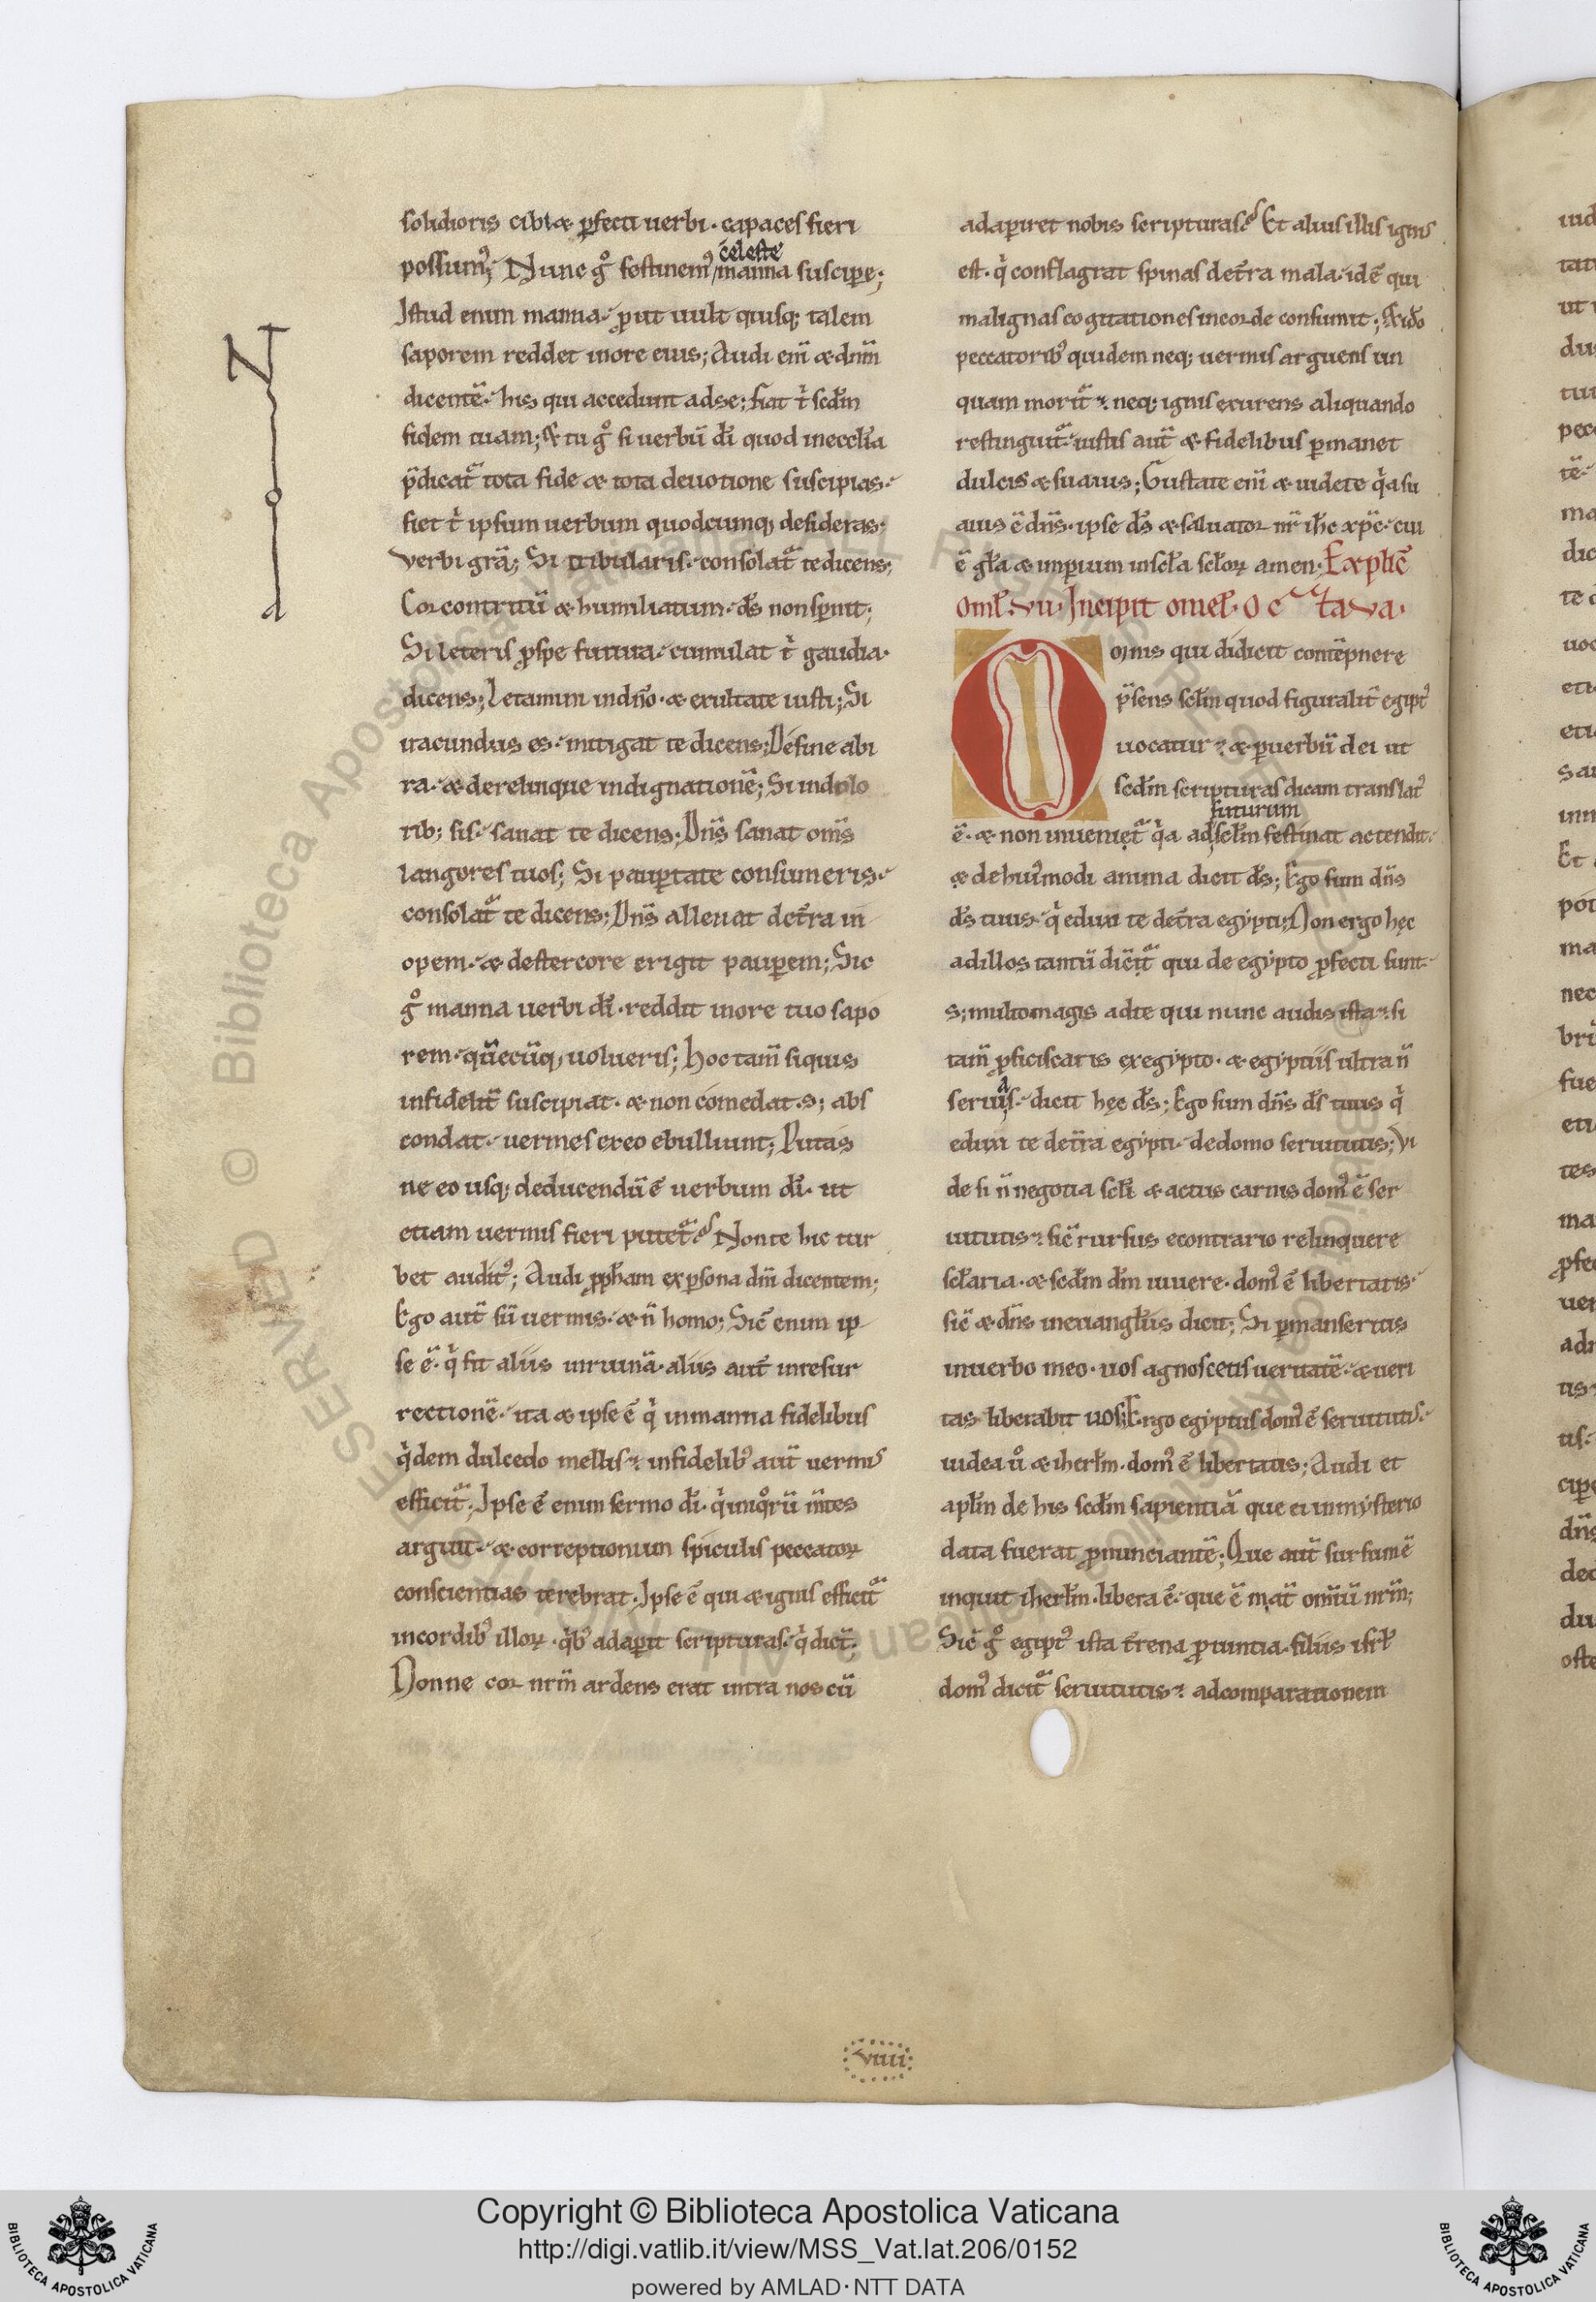 solidioris cibi æ p̱fecti uerbi · capaces fieri
celeste
possumꝰ; Nunc gͦ festinemꝰ manna suscipe̱;
Istud enim manna · prout uult quisq; talem
saporem reddet inore eius; Audi eni̅ æ dnm̅
dicente̅ · his qui accedunt adse; fiat tͥ scdm̅
fidem tuam; & tu gͦ si uerbu̅ di̅ quod inecclia̅
p̅dicat᷑ tota fide æ tota deuotione suscipias ·
fiet tͥ ipsum uerbum quodcumq; desideras;
verbi gra̅; Si tribularis · consolat᷑ te dicens;
Cor contritu̅ æ humiliatum · ds̅ non spernit;
Si leteris p̱spe futura · cumulat tͥ gaudia ·
dicens; Letamini indno̅ · æ exultate iusti; Si
iracundus es · mitigat te dicens; Desine abi
ra · æ derelinque indignatione̅; Si indolo
rib; sis · sanat te dicens; Dns̅ sanat oms̅
langores tuos; Si paup̱tate consumeris ·
consolat᷑ te dicens; Dns̅ alleuat det̅ra in
opem · æ destercore erigit paup̱em; Sic
gͦ manna uerbi di̅ · reddit inore tuo sapo
rem · que̅cu̅q; uolueris; hoc tam̅ siquis
infidelit̅ suscipiat · æ non comedat · s; abs
condat · uermes exeo ebulliunt; Putas
ne eo usq; deducendu̅ e̅ uerbum di̅ · ut
etiam uermis fieri putet᷑? Non te hic tur
bet auditꝰ; Audi pp̅ham exp̱sona dni̅ dicentem;
Ego aut̅ su̅ uermis · æ n̅ homo; Sic̅ enim ip
se e̅ · qͥ fit aliis inruina̅ · aliis aut̅ inresur
rectione̅ · ita æ ipse e̅ qͥ inmanna fidelibus
qͥdem dulcedo mellis · infidelibꝰ aut̅ uermis
efficit᷑; Ipse e̅ enim sermo di̅ · qͥ iniqͦru̅ m̅tes
arguit · æ correptionum spiculis peccatoꝝ
conscientias terebrat; Ipse e̅ qui æ ignis efficit᷑
incordibꝰ illoꝝ · qͥbꝰ adap̱it scripturas · qͥ dict̅ ·
Nonne cor nrm̅ ardens erat intra nos cu̅
adap̱iret nobis scripturas? Et alius illis ignis
est · qͥ conflagrat spinas det̅ra mala · ide̅ qui
malignas cogitationes incorde consumit; & ido̅
peccatoribꝰ quidem neq; uermis arguens un
quam morit᷑ · neq; ignis exurens aliquando
restinguit᷑ · iustis aut̅ æ fidelibus p̱manet
dulcis æ suauis; Gustate eni̅ æ uidete qͥa su
auis e̅ dns̅ · ipse ds̅ æ saluator nr̅ ih̅c xp̅c · cui
e̅ gl̅a æ imp̱ium inscl̅a scl̅oꝝ amen · Explic̅
omel̅ · vii · Incipit omel̅ · octava ·
Omnis qui didicit conte̅pnere
p̅sens sclm̅ quod figuralit̅ egiptꝰ
uocatur · æ p̱uerbu̅ dei ut
scdm̅ scripturas dicam translatꝰ
futurum
e̅ · æ non inueniet᷑ qͥa ad sclm̅ festinat æ tendit ·
æ de huiꝰmodi anima dicit ds̅; Ego sum dns̅
ds̅ tuus · qͥ eduxi te det̅ra egypti; Non ergo hęc
adillos tantu̅ dicit᷑ qui de egypto p̱fecti sunt ·
s; multomagis adte qui nunc audis ista · si
tam̅ p̱ficiscaris exegypto · æ egyptiis ultra n̅
a
seruis · dicit hęc ds̅; Ego sum dns̅ ds̅ tuus qͥ
eduxi te det̅ra egypti · dedomo seruitutis; Vi
de si n̅ negotia scl̅i æ actus carnis domꝰ e̅ ser
uitutis · sic̅ rursus econtrario relinquere
scl̅aria · æ scdm̅ dm̅ uiuere · domꝰ e̅ libertatis ·
sic̅ æ dns̅ ineuangl̅iis dicit; Si p̱manseritis
inuerbo meo · uos agnoscetis ueritate̅ · æ ueri
tas liberabit uos; Ergo egyptus domꝰ e̅ seruitutis ·
iudea uͦ æ iherlm̅ · domꝰ e̅ libertatis; Audi et
aplm̅ de his scdm̅ sapientia̅ que ei inmysterio
data fuerat p̱nunciante̅; Que aut̅ sursum e̅
inquit iherlm̅ · libera e̅ · que e̅ mat̅ omiu̅ nrm̅;
Sic̅ gͦ egiptꝰ ista t̅rena p̱uintia · filiis isrl̅
domꝰ dicit᷑ seruitutis · adcomparationem
viiii
Copyright © Biblioteca Apostolica Vaticana
http://digi.vatlib.it/view/MSS_Vat.lat.206/0152
powered by AMLAD · NTT DATA
BIBLIOTECA APOSTOLICA VATICANA
BIBLIOTECA APOSTOLICA VATICANA